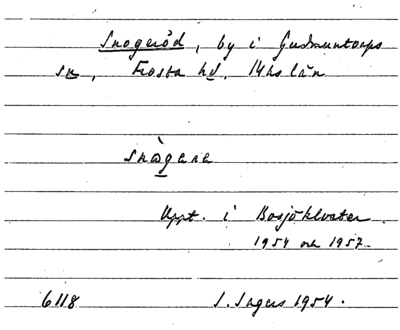 Snogeröd, by i Gudmuntorps
sn, Frosta hd. Mhs län
snògara
Uppt. i Bosjökloster
1954 och 1957.
6118 S. Ingers 1954.